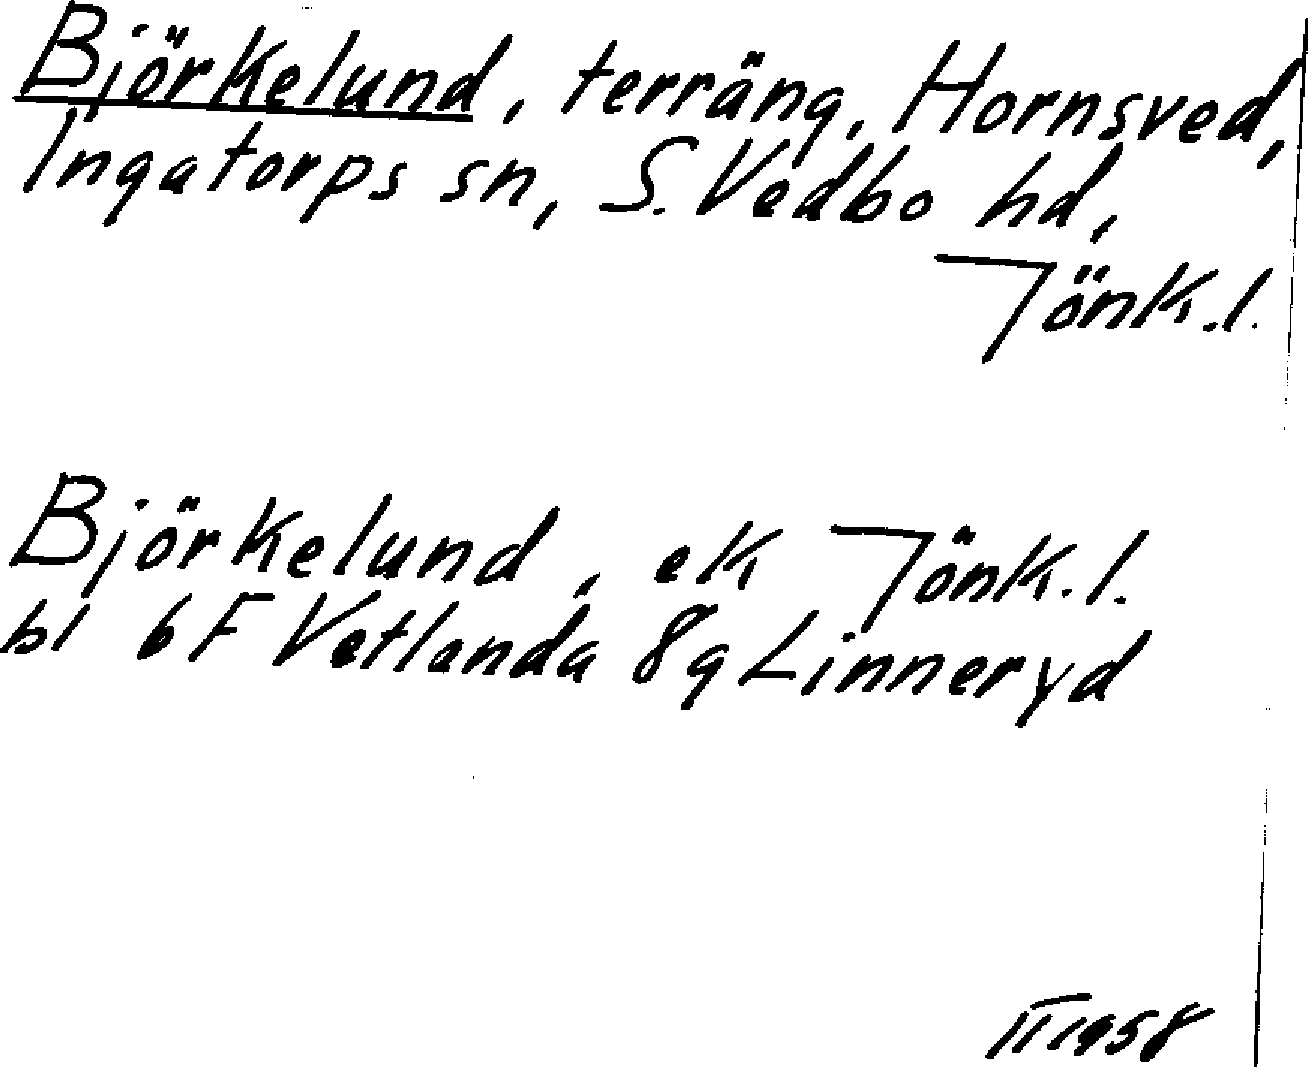 Björkelund, terräng, Hornsved,
Ingatorps sn, S. Vedbo hd,
Jönk. l.
Björkelund, ek Jönk. l.
bl 6F Vetlanda 8g Linneryd
II 1958